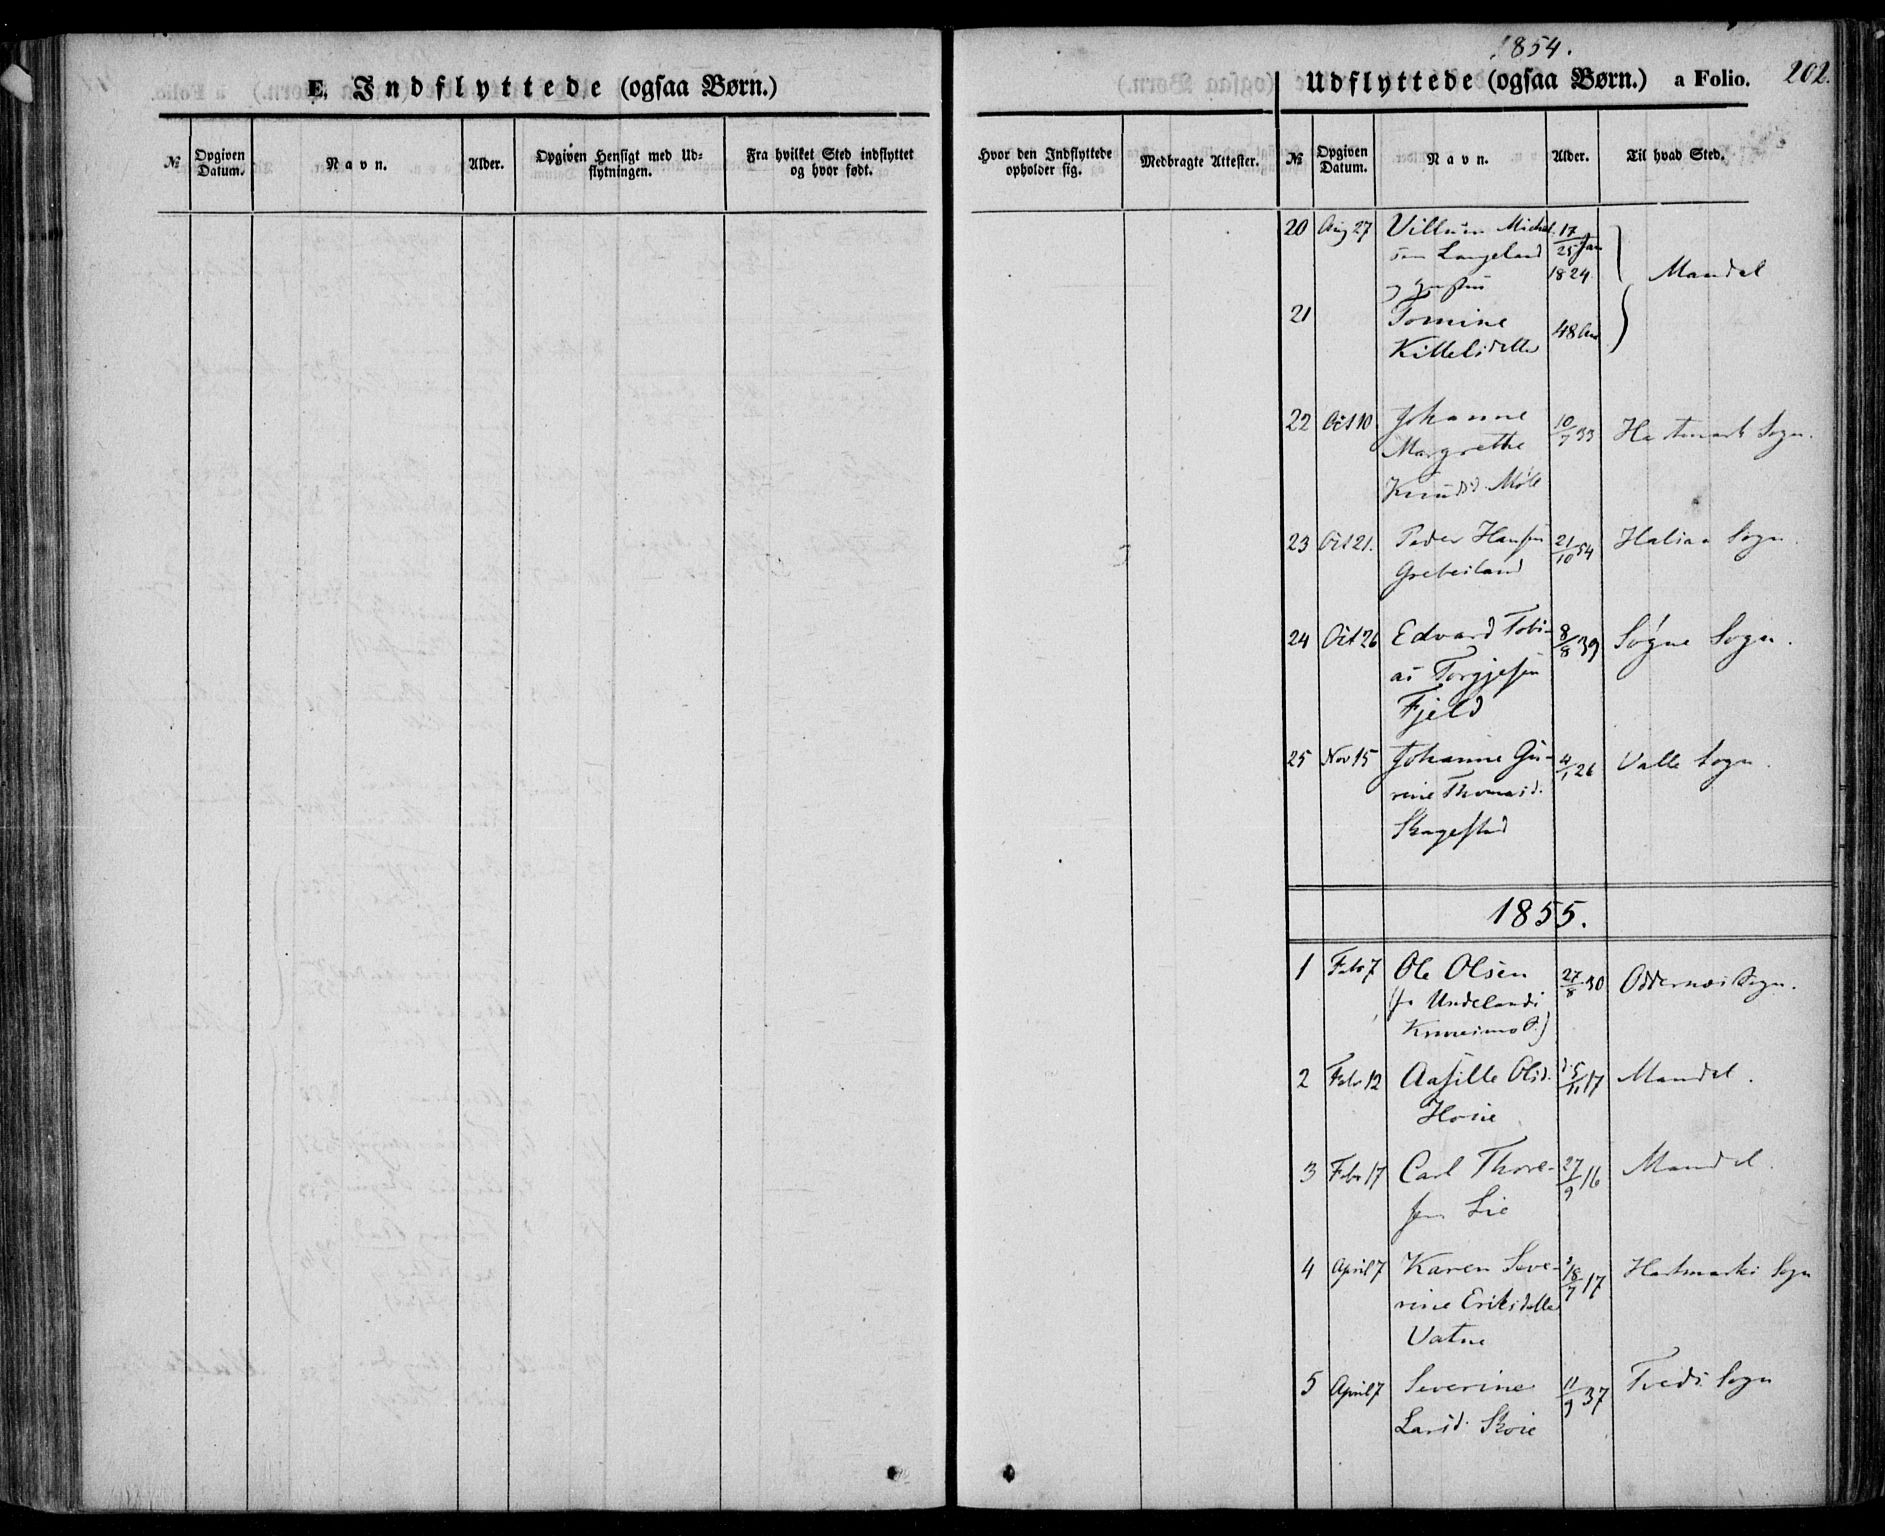 E. Indflyttede (ogsaa Børn.)
№ Opgiven Datum. Navn. Alder. Opgiven Hensigt med Udflytningen. Fra hvilket Sted indflyttet og hvor født.
1854.
Udflyttede (ogsaa Børn.) a Folio. 202.
Hvor den Indflyttede opholder sig. Medbragte Attester. № Opgiven Datum. Navn. Alder. Til hvad Sted.
20 Aug 27 Villum Michel- 17
sen Langeland 25 Jan
1824. Mandal
21 Tomine
Kittelsdatter
22 Oct 10 Johanne 10/7 33 Hartmark Sogn.
Margrethe
Knudsd. Møll
23 Oct 21. Peder Hansen 21/10 54 Halsaa Sogn.
Grebeiland
24 Oct 26 Edvard Tobi- 8/8 39 Søgne Sogn.
as Torgjesen
Fjeld
25 Nov 15 Johanne Gu- 4/1 26 Valle Sogn.
rine Thomasd.
Skagestad
1855.
1 Febr 7 Ole Olsen 27/8 30 Oddernæs Sogn.
2 Febr 12 Aasille Olsd. Mandal.
Hoiie
3 Febr 17 Carl Thore- 27/9 16 Mandal.
sen Lie
4 April 7 Karen Seve- 18/7 17 Hartmarks Sogn
rine Eriksdatter
Vatne
5 April 7 Severine 11/9 37 Tveds Sogn
Larsd. Skoie